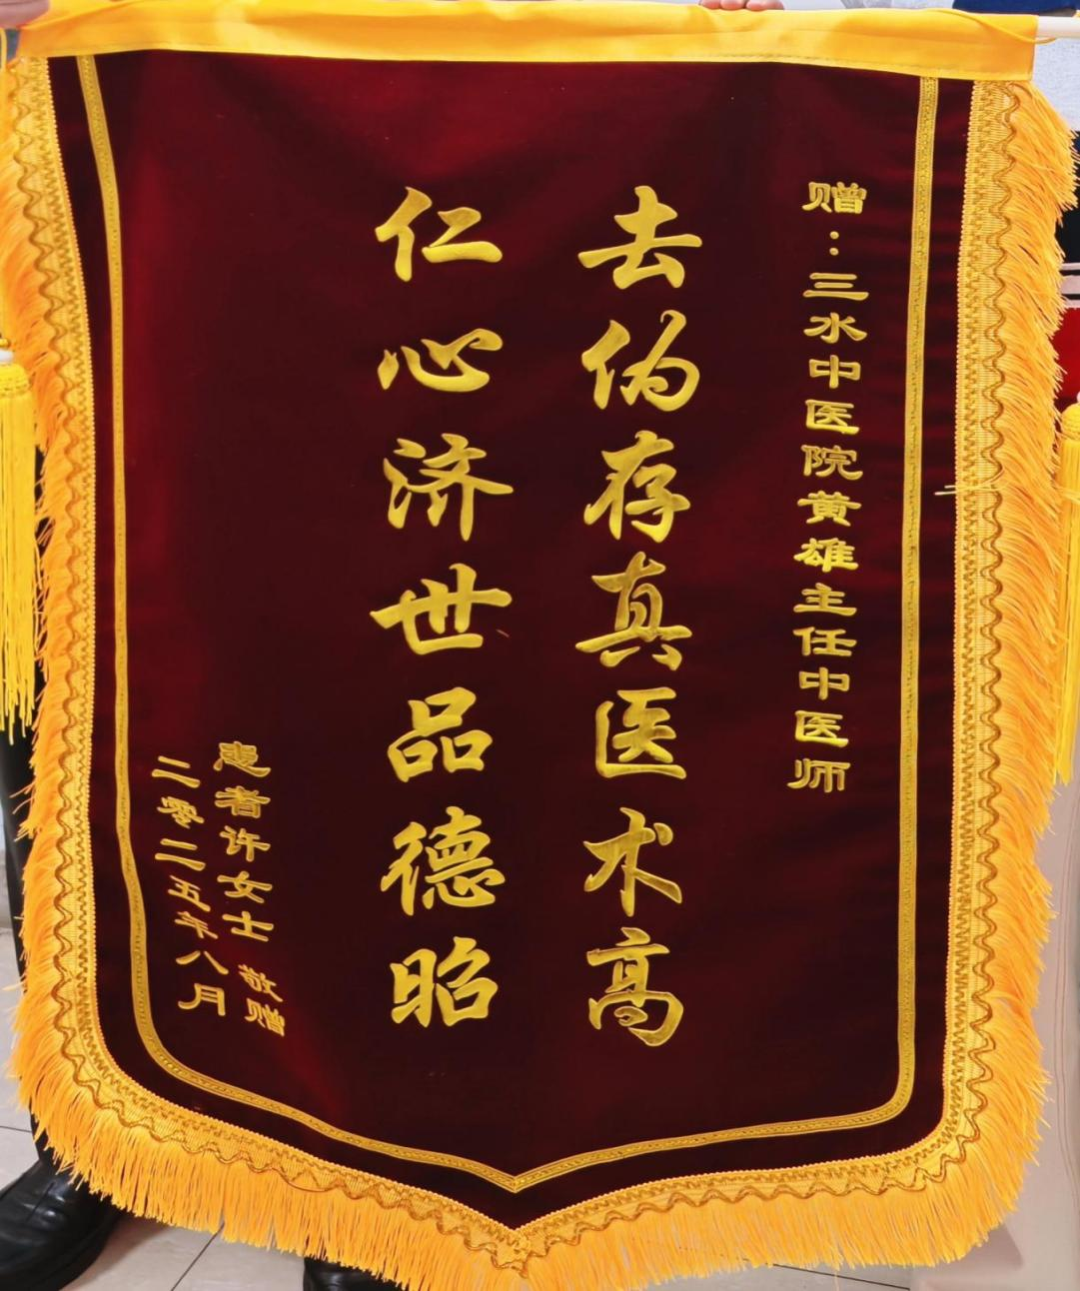 赠：三水中医院黄雄主任中医师
去伪存真医术高
仁心济世品德昭
患者许女士 敬赠
二零二五年八月